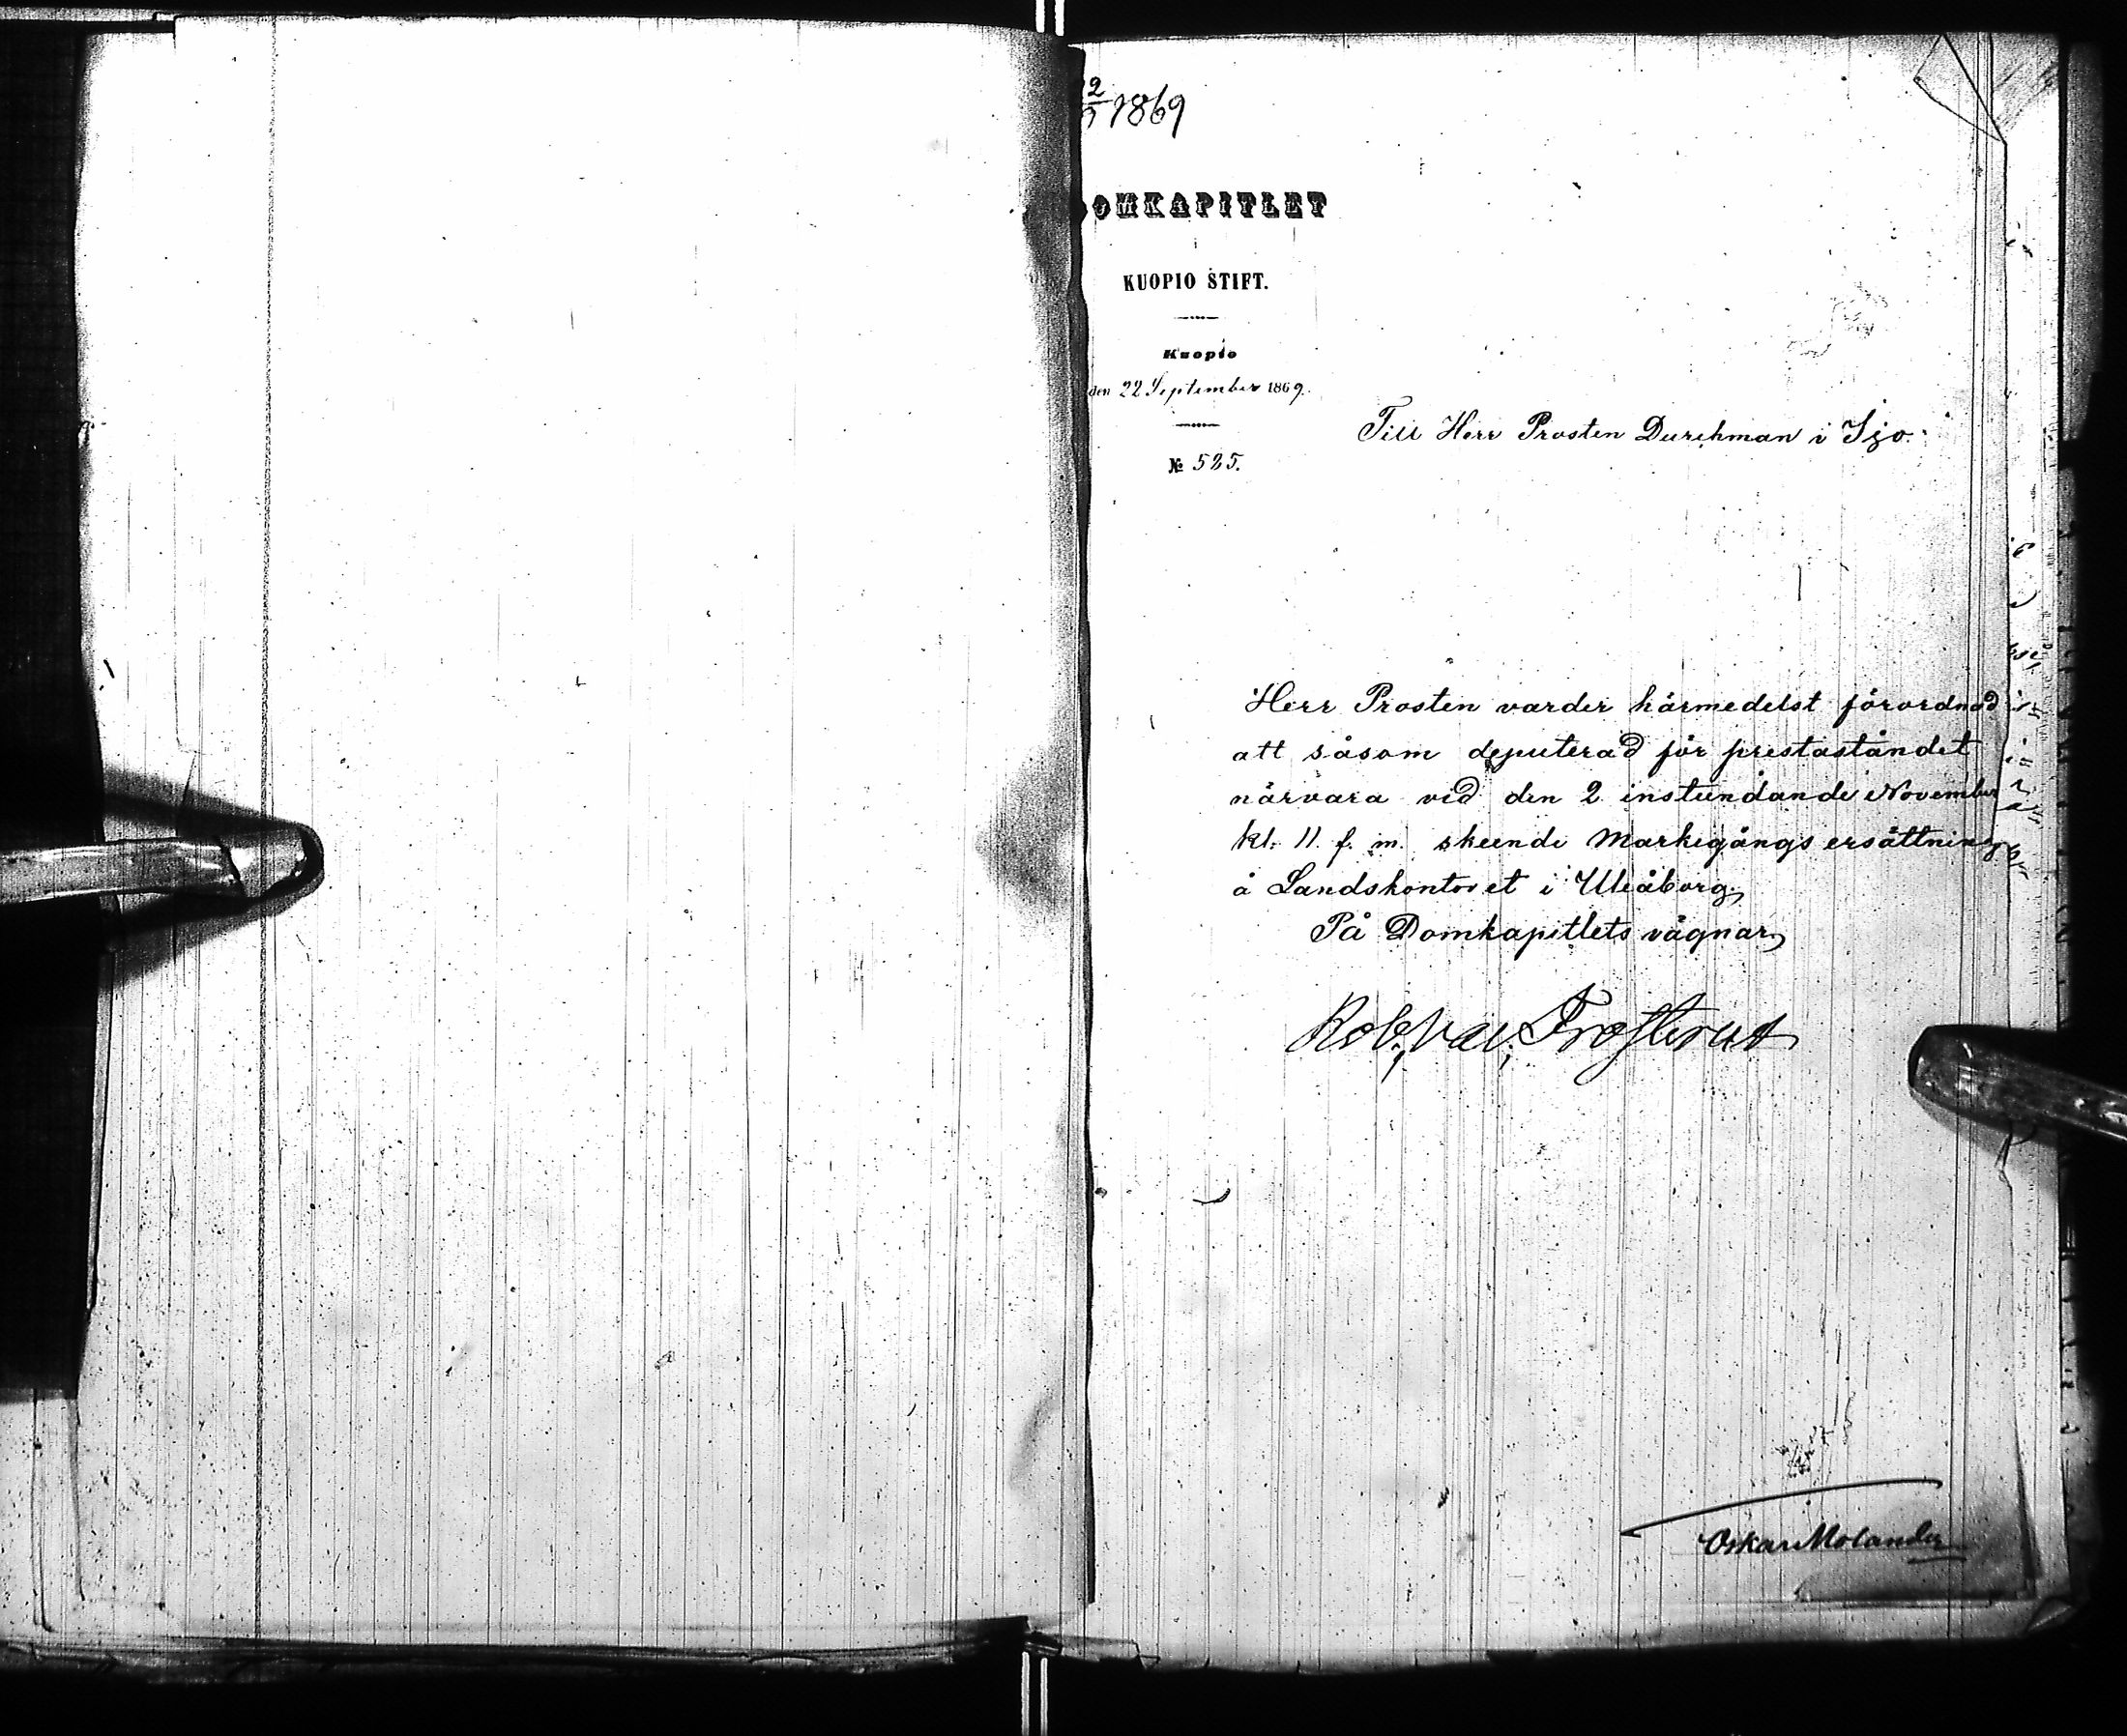 22/9 1869
DOMKAPITLET
i
KUOPIO STIFT.
Kuopio
den 22 September 1869.
№ 525.
Till Herr Prosten Durchman i Ijo.
Herr Prosten varder härmedelst förordnad
att såsom deputerad för prestaståndet
närvara vid den 2 instundande November
kl. 11. f. m. skeende Markegångs ersättning
å Landskontoret i Uleåborg,
På Domkapitlets vägnar,
Rob. Val. Frosterus
Oskar Molander